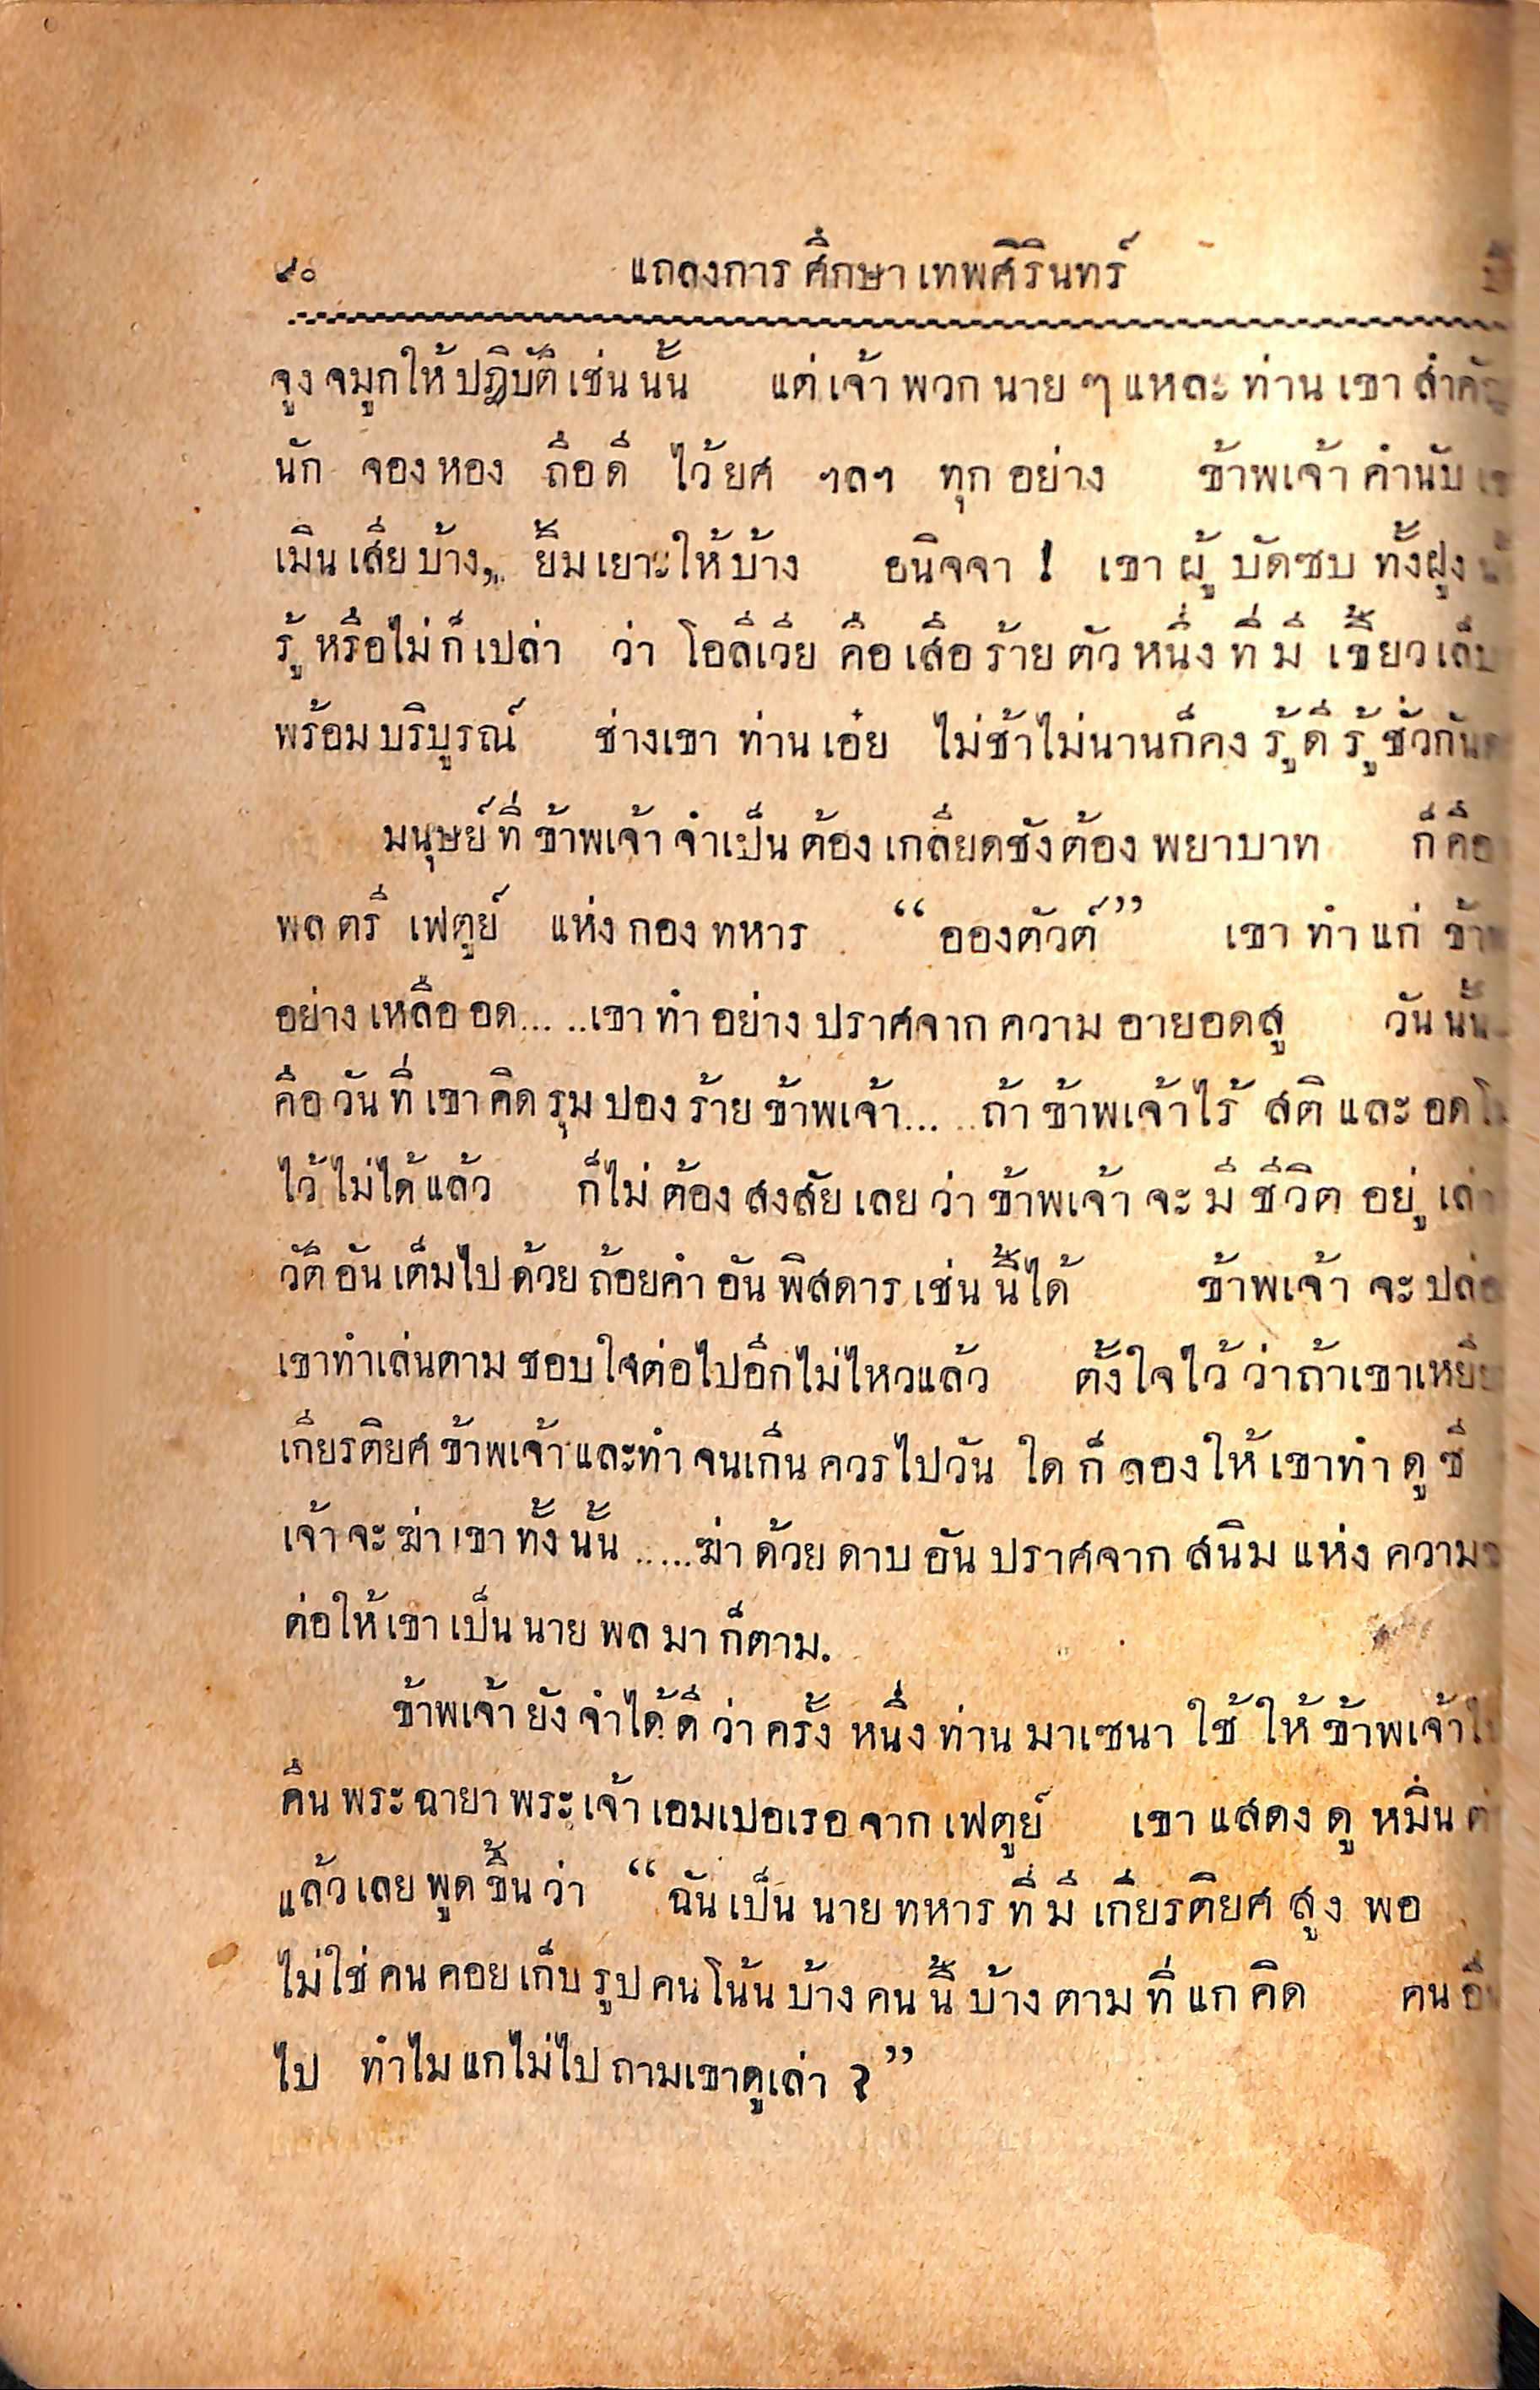 ๙๐ แถลงการศึกษาเทพศิรินทร์
จูงจมูกให้ปฏิบัติเช่นนั้น แต่เจ้าพวกนาย ๆ แหละท่าน เขาสำคัญ
นัก จองหอง ถือดี ไว้ยศ ฯลฯ ทุกอย่าง ข้าพเจ้าคำนับ
เมินเสียบ้าง, ยิ้มเยาะให้บ้าง อนิจจา ! เขาผู้บัดซบทั้งฝูง
รู้หรือไม่ก็เปล่า ว่า โอลีเวีย คือเสือร้ายตัวหนึ่งที่มี เขี้ยวเล็บ
พร้อมบริบูรณ์ ช่างเขา ท่านเอ๋ย ไม่ช้าไม่นานก็คงรู้ดีรู้ชั่วกัน
มนุษย์ที่ข้าพเจ้าจำเป็นต้องเกลียดชังต้องพยาบาท ก็คือ
พลตรี เฟตูย์ แห่งกองทหาร “อองตัวต์” เขาทำแก่
อย่างเหลืออด... ..เขาทำอย่างปราศจากความอายอดสู วันนั้น
คือวันที่เขาคิดรุมปองร้ายข้าพเจ้า... ..ถ้าข้าพเจ้าไร้ สติและ
ไว้ไม่ได้แล้ว ก็ไม่ต้องสงสัยเลยว่าข้าพเจ้าจะมีชีวิตอยู่
วัติอันเต็มไปด้วยถ้อยคำอันพิสดารเช่นนี้ได้ ข้าพเจ้า จะ
เขาทำเล่นตามชอบใจต่อไปอีกไม่ไหวแล้ว ตั้งใจไว้ว่าถ้าเขา
เกียรติยศข้าพเจ้าและทำจนเกินควรไปวัน ใดก็ลองให้เขาทำดูซี
เจ้าจะฆ่าเขาทั้งนั้น .....ฆ่าด้วยดาบอันปราศจากสนิมแห่ง ความ
ต่อให้เขาเป็นนายพลมาก็ตาม.
ข้าพเจ้ายังจำได้ดีว่าครั้งหนึ่งท่านมาเซนาใช้ให้ข้าพเจ้า
คืนพระฉายาพระเจ้าเอมเปอเรอจากเฟตูย์ เขาแสดงดูหมิ่น
แล้วเลยพูดขึ้นว่า “ฉันเป็นนายทหารที่มีเกียรติยศสูง พอ
ไม่ใช่คนคอยเก็บรูปคนโน้นบ้างคนนี้บ้างตามที่แกคิด คน
ไป ทำไมแกไม่ไปถามเขาดูเล่า ?”